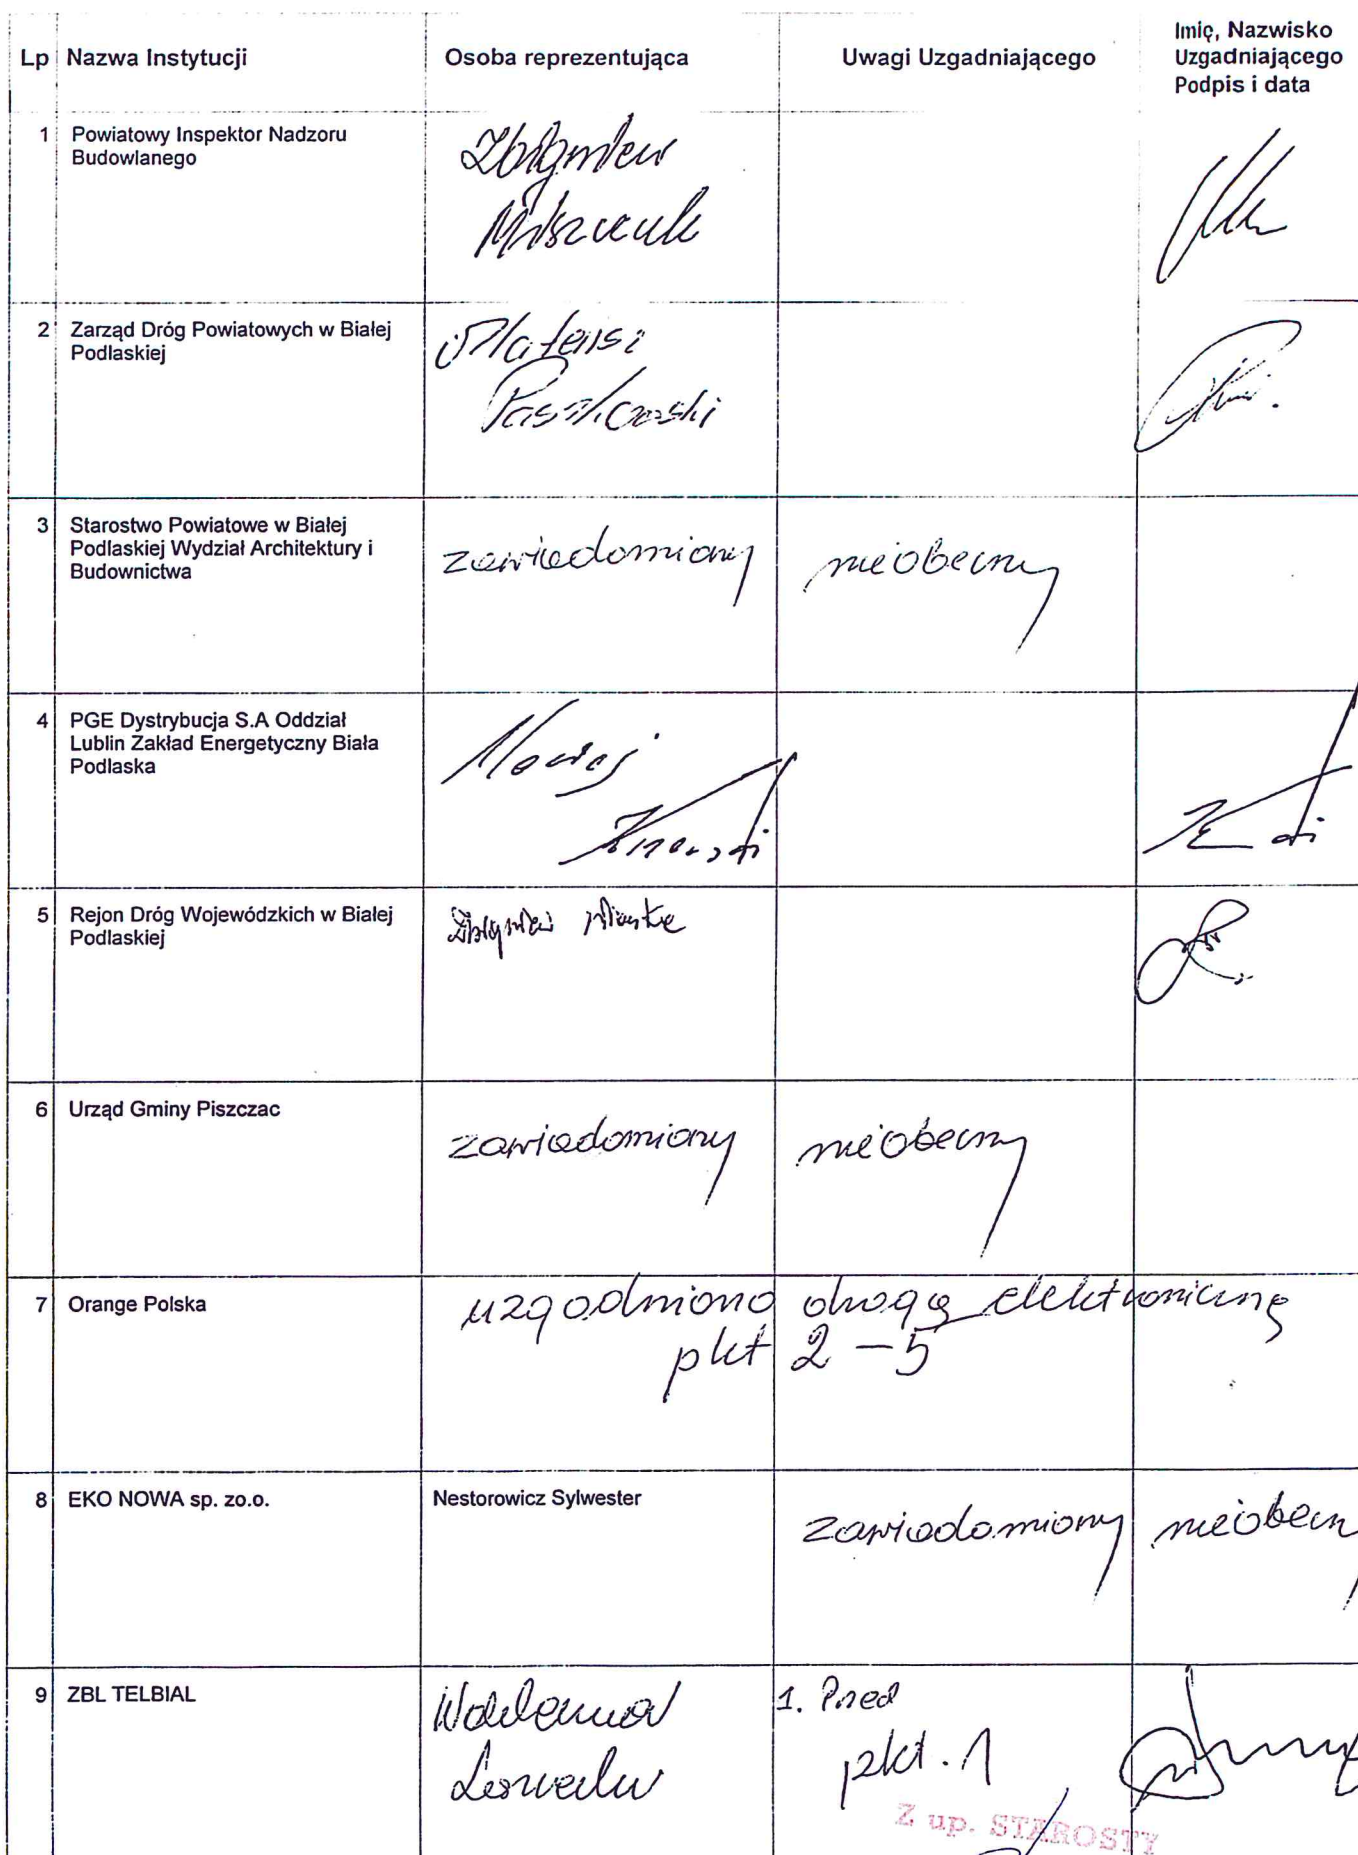 Lp Nazwa Instytucji Osoba reprezentująca Uwagi Uzgadniającego Imię, Nazwisko
Uzgadniającego
Podpis i data
1 Powiatowy Inspektor Nadzoru
Budowlanego
Zbigniew
2 Zarząd Dróg Powiatowych w Białej
Podlaskiej
Mateusz
3 Starostwo Powiatowe w Białej
Podlaskiej Wydział Architektury i
Budownictwa
zawiadomiony nieobecny
4 PGE Dystrybucja S.A Oddział
Lublin Zakład Energetyczny Biała
Podlaska
Maciej
5 Rejon Dróg Wojewódzkich w Białej
Podlaskiej
Zbigniew
6 Urząd Gminy Piszczac
zawiadomiony nieobecny
7 Orange Polska
uzgodniono drogą elektroniczną
pkt 2 – 5
8 EKO NOWA sp. zo.o. Nestorowicz Sylwester
zawiadomiony nieobecn
9 ZBL TELBIAL
Waldemar
1. Pned
pkt. 1
Z up. STAROSTY